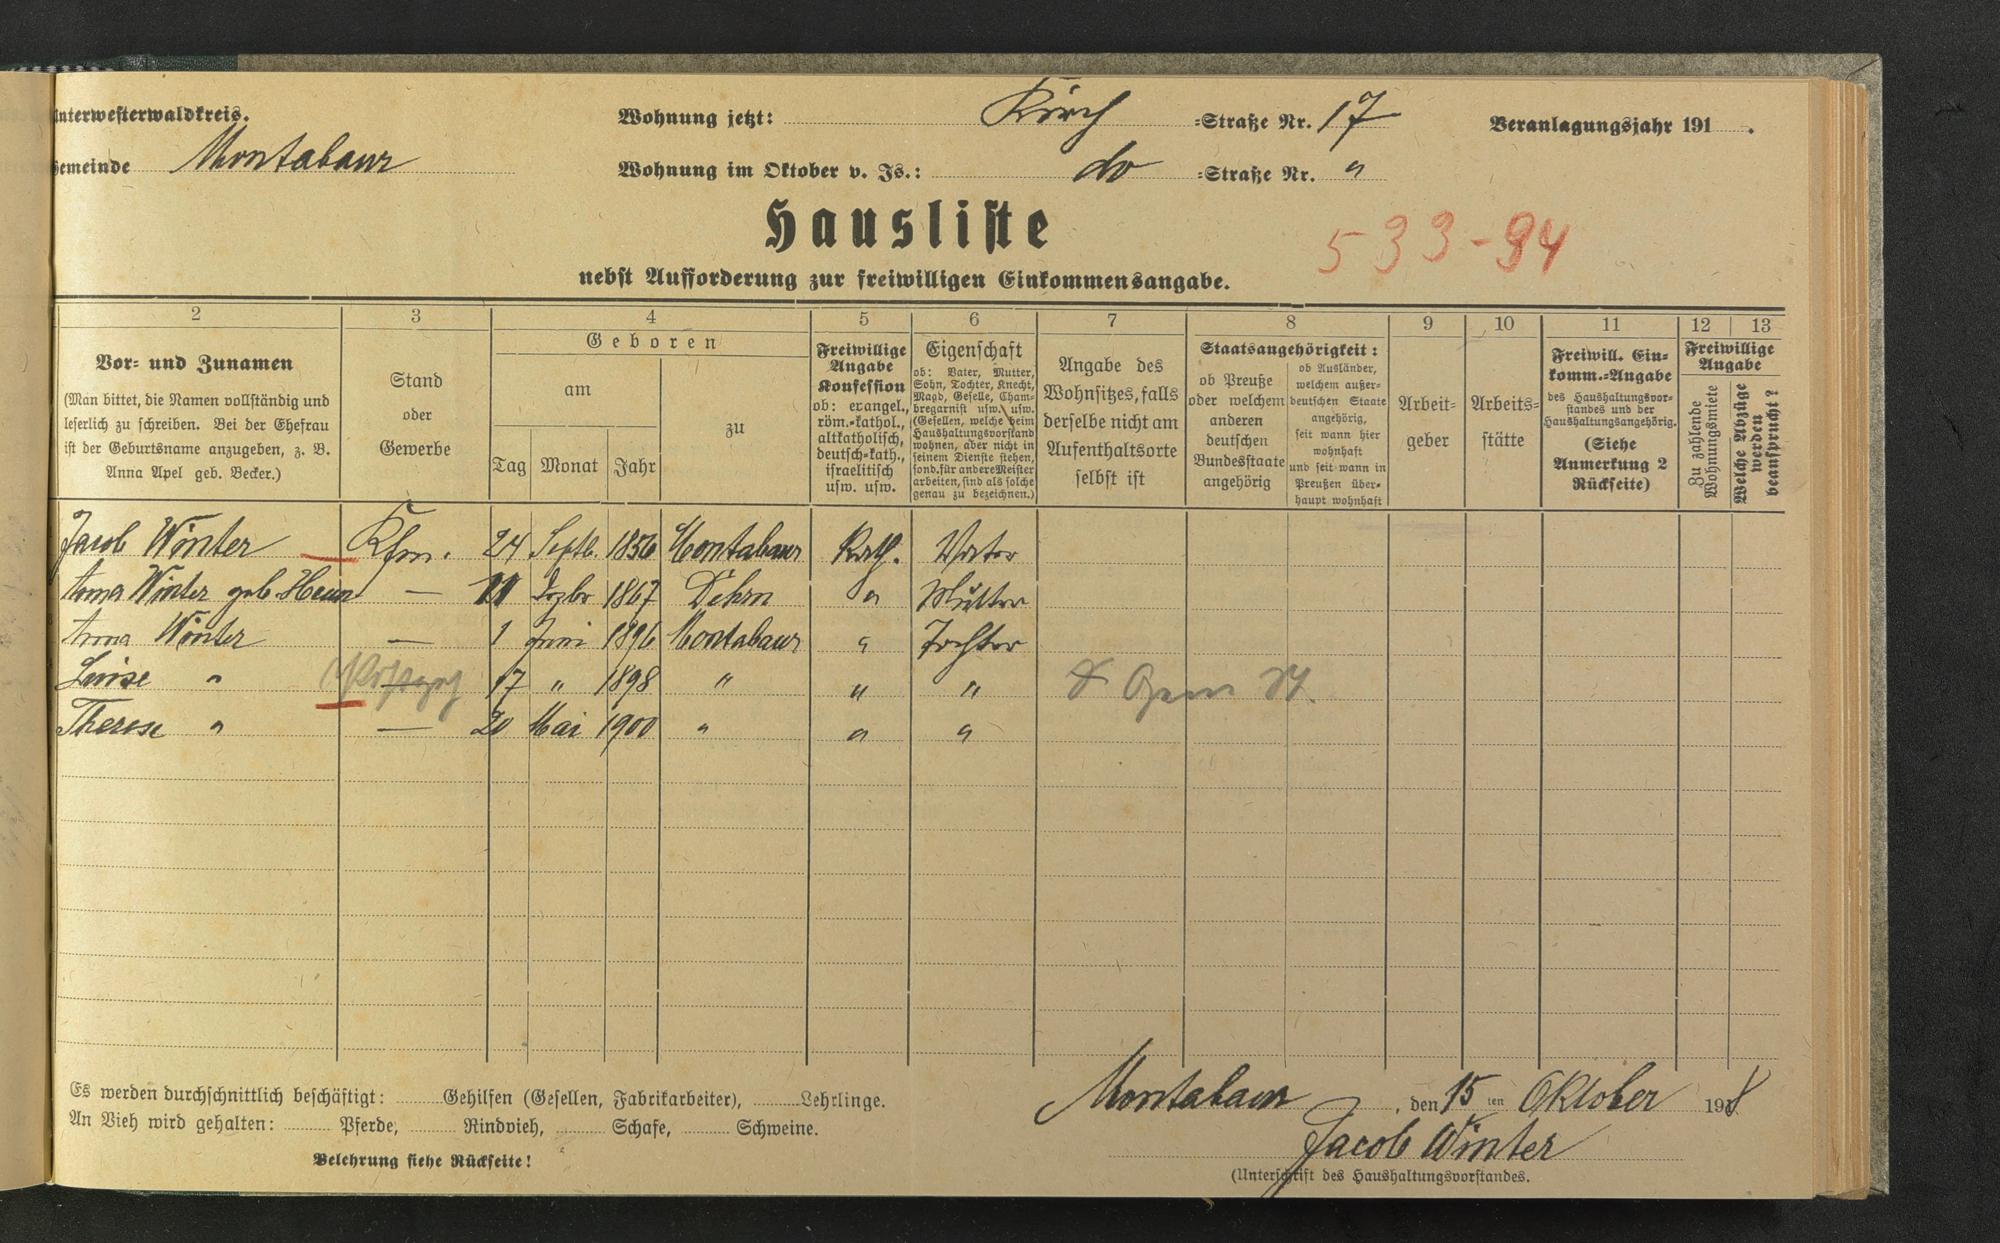 Unterwesterwaldkreis.
Gemeinde Montabaur
Wohnung jetzt: Kirch =Straße Nr. 17
Wohnung im Oktober v. Js.: do =Straße Nr. "
Veranlagungsjahr 191 .
Hausliste
533-94
nebst Aufforderung zur freiwilligen Einkommensangabe.
2 3 4 5 6 7 8 9 10 11 12 13
Vor- und Zunamen
(Man bittet, die Namen vollständig und
leserlich zu schreiben. Bei der Ehefrau
ist der Geburtsname anzugeben, z. B.
Anna Apel geb. Becker.)
Stand
oder
Gewerbe
Geboren
am
Tag Monat Jahr
zu
Freiwillige
Angabe
Konfession
ob: evangel.,
röm.=kathol.,
altkatholisch,
deutsch=kath.,
israelitisch
usw. usw.
Eigenschaft
ob: Vater, Mutter,
Sohn, Tochter, Knecht,
Magd, Geselle, Cham-
bregarnist usw. usw.
(Gesellen, welche beim
Haushaltungsvorstand
wohnen, aber nicht in
seinem Dienste stehen,
sond. für andere Meister
arbeiten, sind als solche
genau zu bezeichnen.)
Angabe des
Wohnsitzes, falls
derselbe nicht am
Aufenthaltsorte
selbst ist
Staatsangehörigkeit:
ob Preuße
oder welchem
anderen
deutschen
Bundesstaate
angehörig
ob Ausländer,
welchem außer-
deutschen Staate
angehörig,
seit wann hier
wohnhaft
und seit wann in
Preußen über-
haupt wohnhaft
Arbeit-
geber
Arbeits-
stätte
Freiwill. Ein-
komm.=Angabe
des Haushaltungsvor-
standes und der
Haushaltungsangehörig.
(Siehe
Anmerkung 2
Rückseite)
Freiwillige
Angabe
Zu zahlende
Wohnungsmiete
Welche Abzüge
werden
beansprucht?
Jacob Winter Kfm. 24 Septb. 1856 Montabaur Kath. Vater
Anna Winter geb. Heun — 11 Dezbr 1867 Dehrn " Mutter
Anna Winter — 1 Juni 1896 Montabaur " Tochter
Luise " 17 " 1898 " " "
Therese " — 20 Mai 1900 " " "
Es werden durchschnittlich beschäftigt: Gehilfen (Gesellen, Fabrikarbeiter), Lehrlinge.
An Vieh wird gehalten: Pferde, Rindvieh, Schafe, Schweine.
Belehrung siehe Rückseite!
Montabaur, den 15 ten Oktober 1918
Jacob Winter
(Unterschrift des Haushaltungsvorstandes.